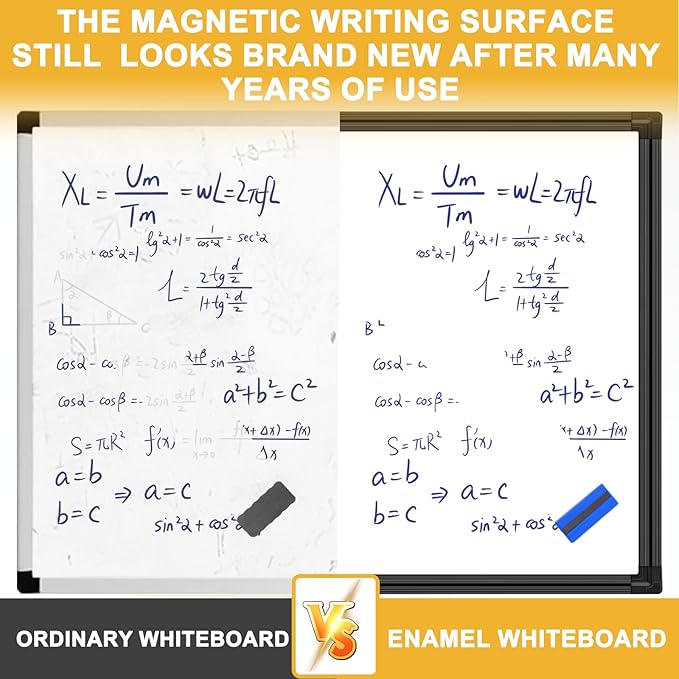 THE MAGNETIC WRITING SURFACE
STILL LOOKS BRAND NEW AFTER MANY
YEARS OF USE
X_L = Um/Tm = wL = 2πfL
lg²2+1 = 1/cos²2 = sec²2
sin²2 + cos²2=1
L = 2tg d/2 / 1+tg² d/2
A
2
B
β
C
cos2 - cosβ = -2sin 2+β/2 sin 2-β/2
cos2 - cosβ = -2sin 2+β/2
a²+b²=C²
S=πR² f'(x) = lim x→0 f(x+Δx)-f(x)/Δx
a=b
b=c ⇒ a=c
sin²2 + cos²
X_L = Um/Tm = wL = 2πfL
lg²2+1 = 1/cos²2 = sec²2
cos²2=1
L = 2tg d/2 / 1+tg² d/2
B
cos2 -
+β/2 sin 2-β/2
a²+b²=C²
cos2 - cosβ =-
S=πR² f'(x)
x+Δx)-f(x)/Δx
a=b
b=c ⇒ a=c
sin²2 + cos²
ORDINARY WHITEBOARD
VS
ENAMEL WHITEBOARD